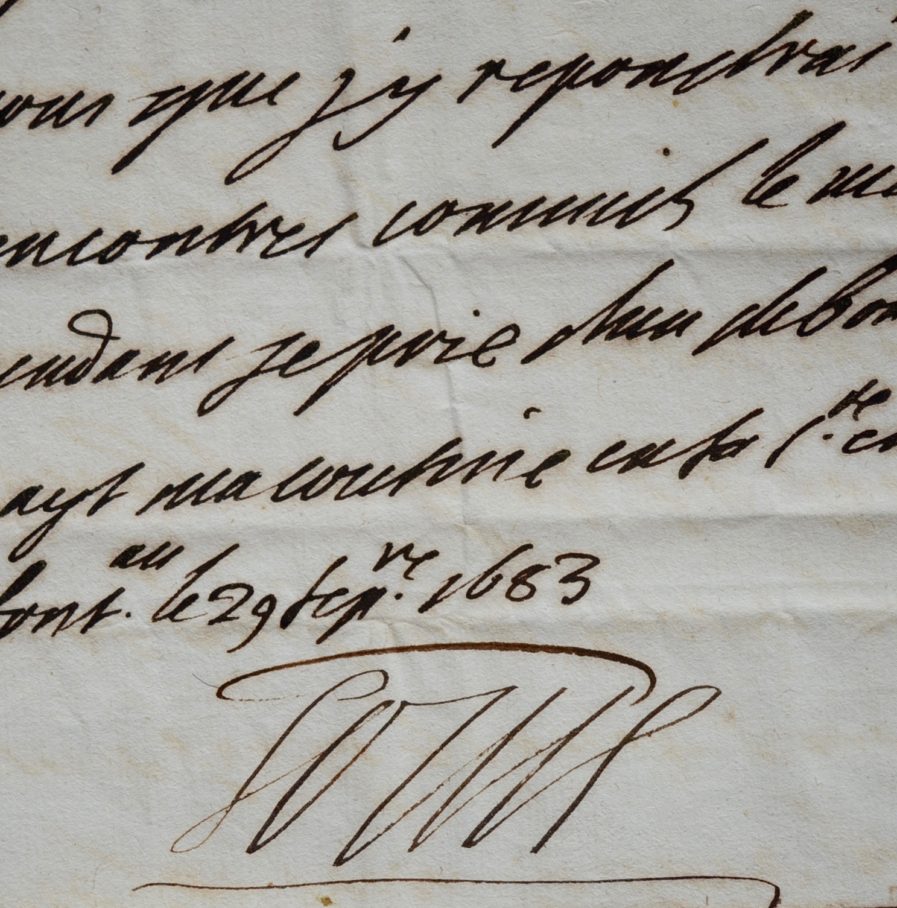 vous que j'y repondrai
rencontres comme il le
endant je prie dieu de bon
ayt mon cousin en sa s.te
font.au le 29 sep.re 1683
Louis